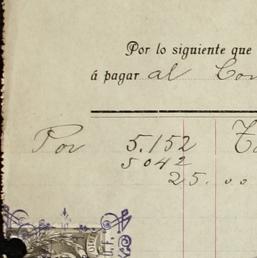 Por lo siguiente que
á pagar al Con
Por 5.152
5042
25.00